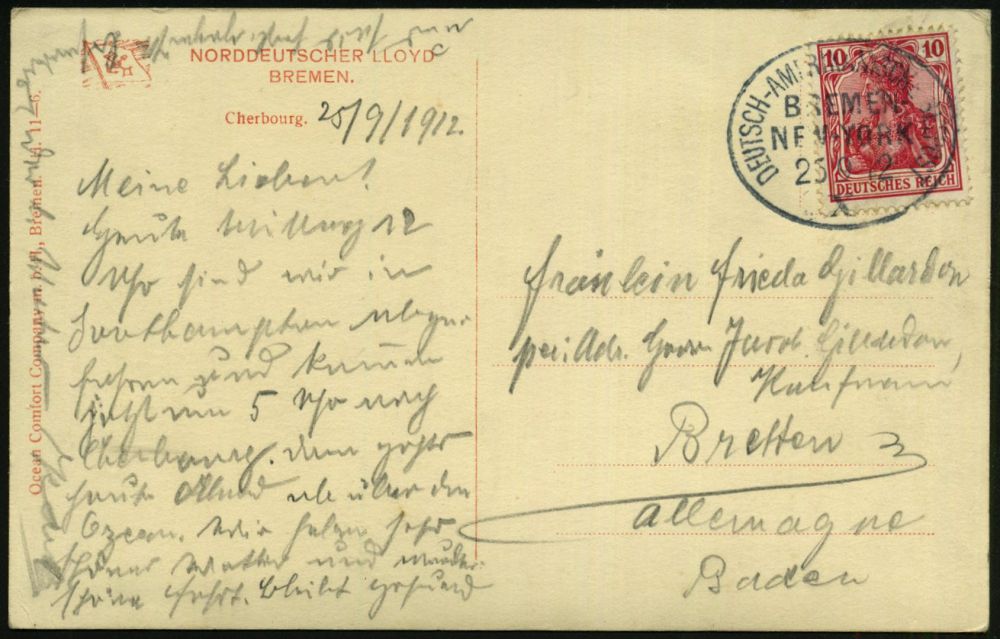 NORDDEUTSCHER LLOYD
BREMEN.
Cherbourg. 25/9/1912.
Meine Lieben!
Heute Mittag 12
Uhr sind wir in
Southampton abge-
fahren und kommen
jetzt um 5 Uhr nach
Cherbourg. dann gehts
heute Abend ab über den
Ozean. Wir haben sehr
schönes Wetter und wunder-
schöne Fahrt. Bleibt gesund
Ocean Comfort Company m. b. H., Bremen. 11-6.
DEUTSCH-AMERIKANISCHE
BREMEN-
NEW-YORK
25 9 12
10 10
DEUTSCHES REICH
Fräulein Frieda Gillardon
per. Adr. Herrn Jacob Gillardon,
Kaufmann
Bretten
Allemagne
Baden